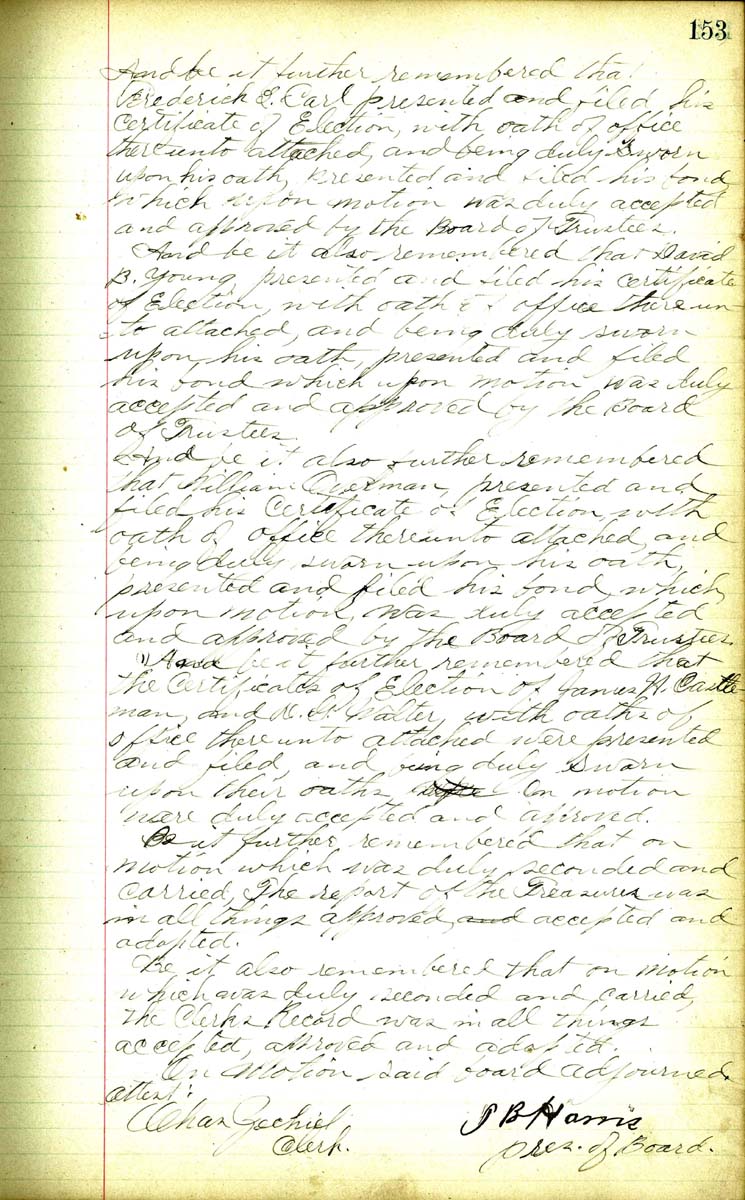 153
And be it further remembered that
Frederick E. Carl presented and filed his
Certificate of Election, with oath of office
thereunto attached, and being duly sworn
upon his oath, presented and filed his bond
which upon motion was duly accepted
and approved by the Board of Trustees.
And be it also remembered that David
B. Young, presented and filed his certificate
of Election, with oath of office thereun
to attached, and being duly sworn
upon his oath, presented and filed
his bond which upon motion was duly
accepted and approved by the Board
of Trustees.
And be it also further remembered
that William, presented and
filed his Certificate of Election, with
oath of office thereunto attached, and
being duly sworn upon his oath,
presented and filed his bond, which,
upon motion, was duly accepted
and approved by the Board of Trustees.
And be it further remembered that
the Certificates of Election of James H. Castle-
man, and Walter, with oaths of
office thereunto attached were presented
and filed, and being duly sworn
upon their oaths, On motion
were duly accepted and approved.
Be it further remembered that on
motion which was duly seconded and
carried, The report of the Treasurer was
in all things approved, and accepted and
adopted.
Be it also remembered that on motion
which was duly seconded and carried,
the Clerks Record was in all things
accepted, approved and adopted.
On motion said board adjourned.
Attest:
Chas Zechiel
Clerk.
S B Harris
Pres. of Board.